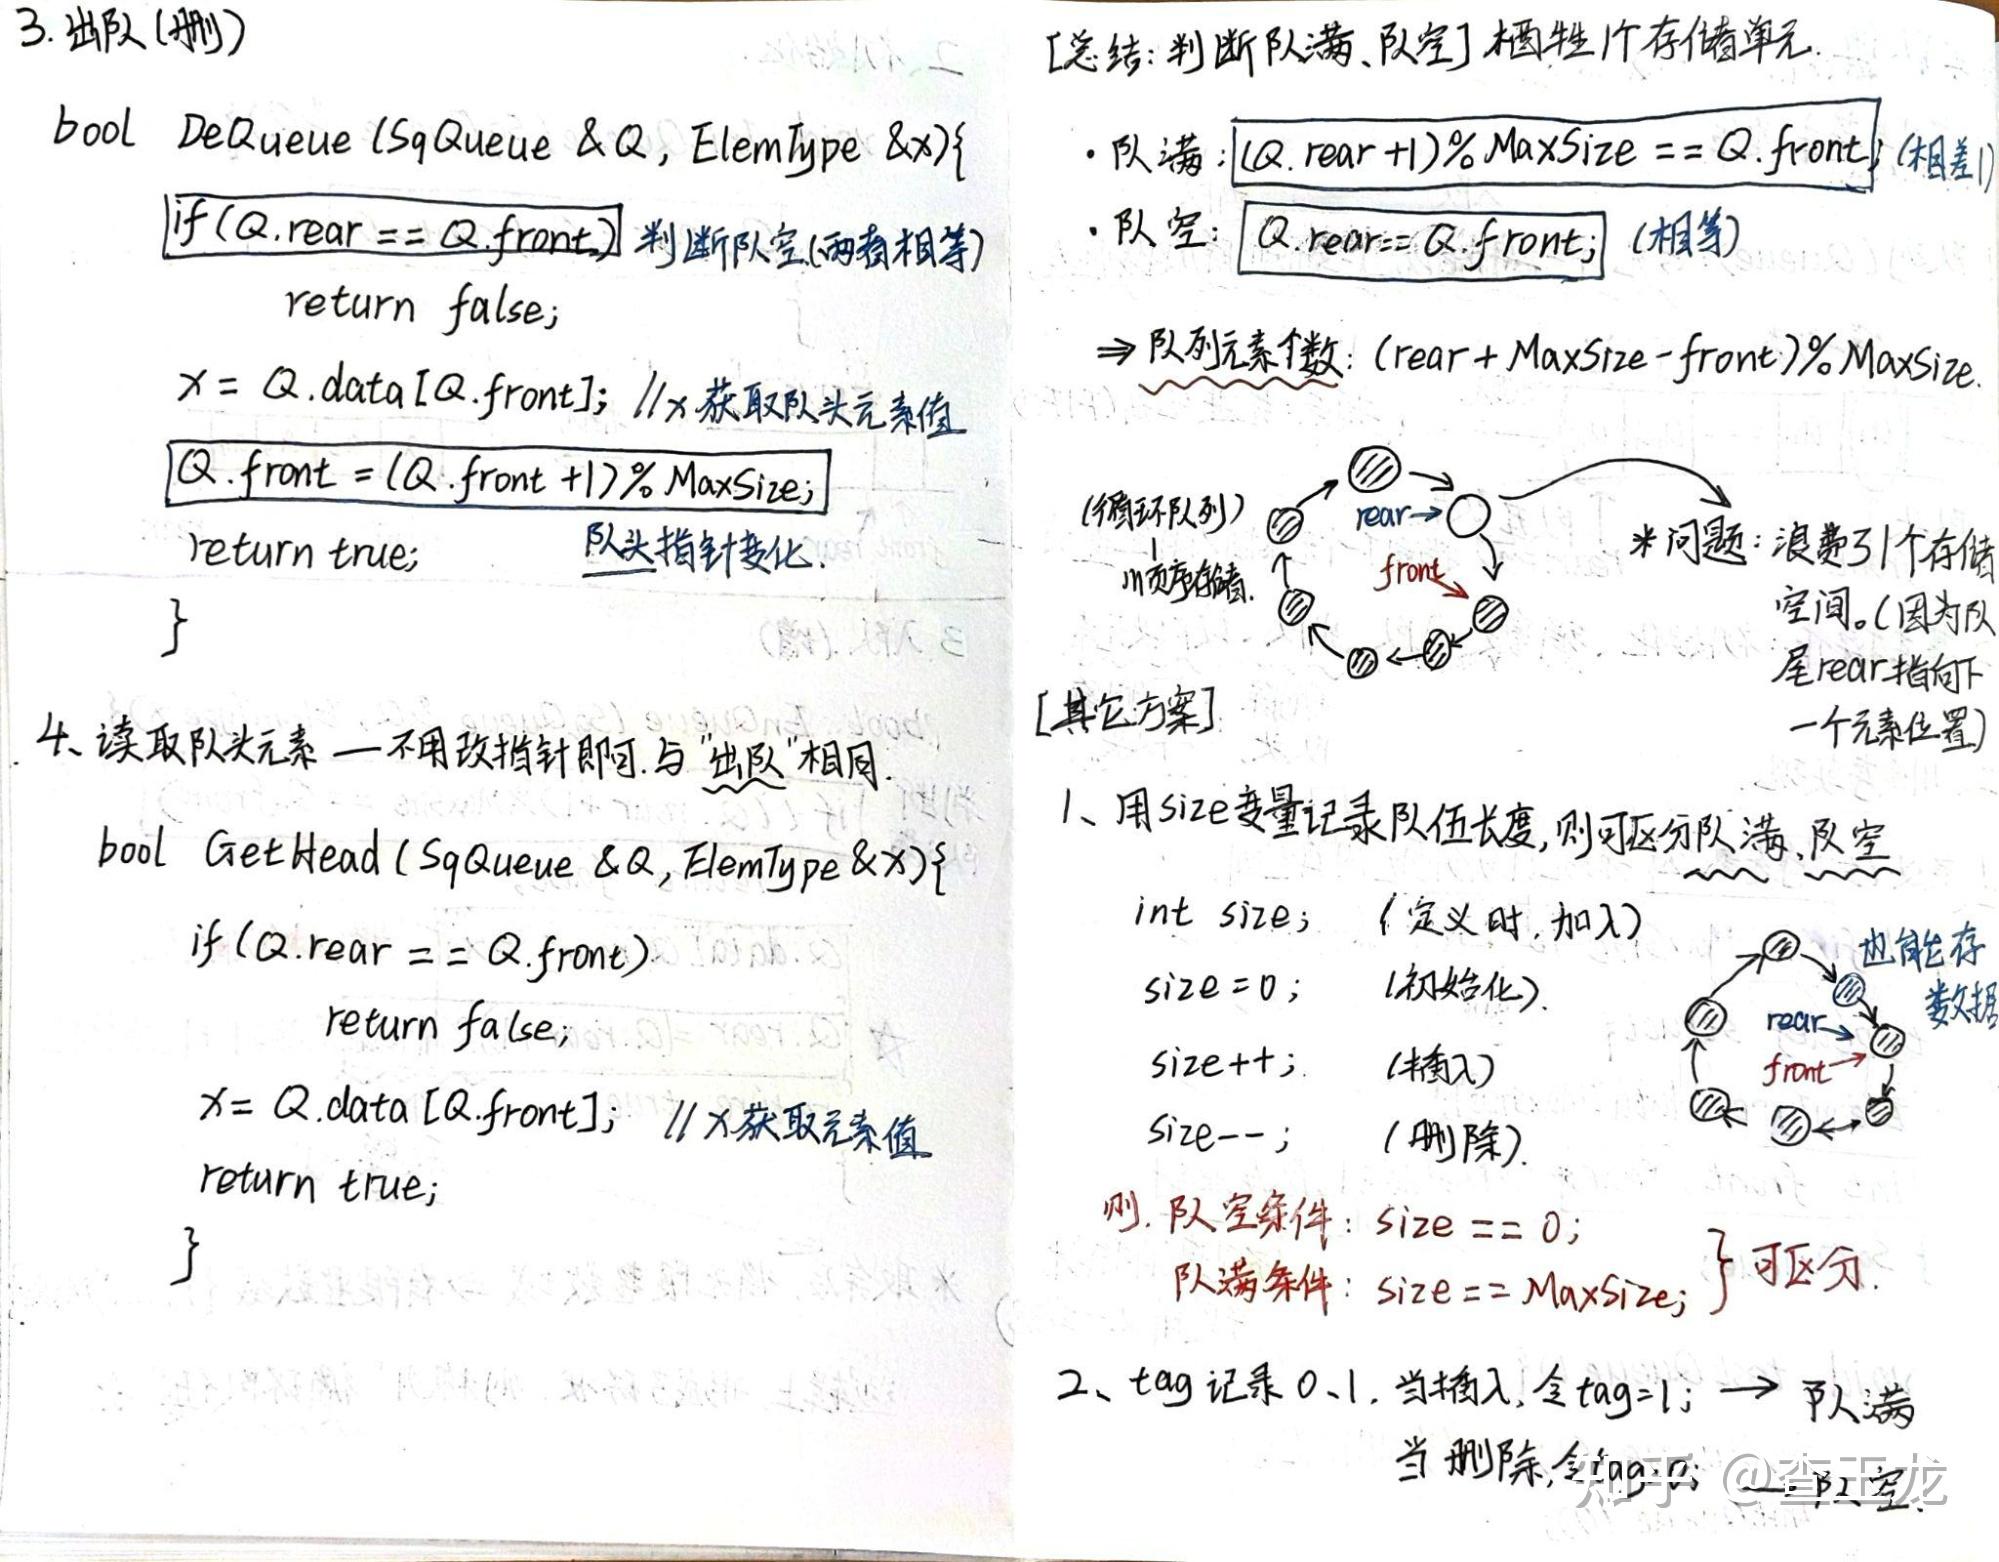 3. 出队(删)
bool DeQueue (SqQueue &Q, ElemType &x){
if(Q.rear == Q.front) 判断队空(两者相等)
return false;
x = Q.data[Q.front]; //x获取队头元素值
Q.front = (Q.front +1)% MaxSize;
return true; 队头指针变化.
}
4、读取队头元素 — 不用改指针即可.与"出队"相同.
bool GetHead (SqQueue &Q, ElemType &x){
if(Q.rear == Q.front)
return false;
x = Q.data[Q.front]; //x获取元素值
return true;
}
[总结:判断队满、队空] 牺牲1个存储单元.
·队满: (Q.rear +1)% MaxSize == Q.front; (相差1)
·队空: Q.rear== Q.front; (相等)
⇒ 队列元素个数: (rear + MaxSize - front)% MaxSize.
(循环队列)
顺序存储.
rear→
front
*问题: 浪费了1个存储
空间。(因为队
尾rear指向下
一个元素位置)
[其它方案]
1、用size变量记录队伍长度,则可区分队满、队空
int size; (定义时,加入)
size=0; (初始化).
size++; (插入)
size--; (删除).
也能存
数据
rear→
front→
则.队空条件: size == 0;
队满条件: size == MaxSize; } 可区分.
2、tag记录0、1. 当插入,令tag=1; → 队满
当删除,令tag=0; → 队空.
知乎 @查王龙